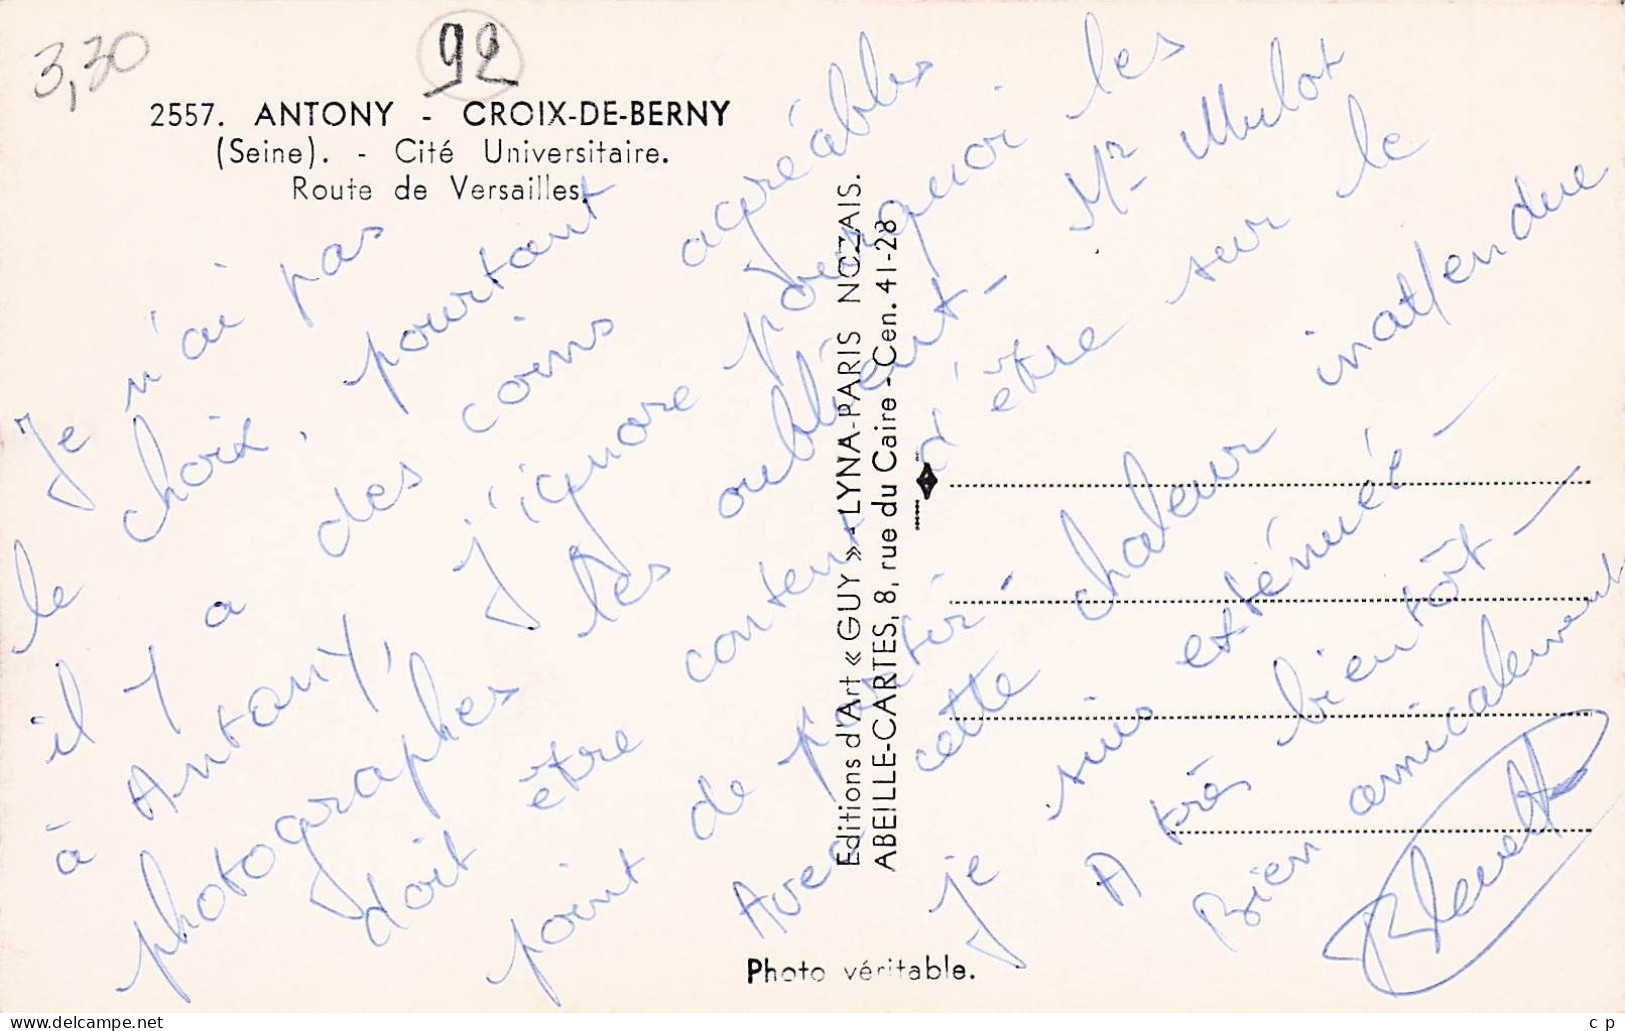 3,30
92
2557. ANTONY - CROIX-DE-BERNY
(Seine). - Cité Universitaire.
Route de Versailles.
Je n'ai pas
le choix, pourtant
il y a des coins agréables
à Antony, j'ignore pourquoi les
photographes les oublient - Mr Mulot
doit être content d'être sur le
point de partir -
Avec cette chaleur inattendue
je suis exténuée -
A très bientôt -
Bien amicalement
Blanchette
Editions d'Art « GUY » - LYNA-PARIS NOZAIS.
ABEILLE-CARTES, 8, rue du Caire - Cen. 41-28
Photo véritable.
delcampe.net
c_p